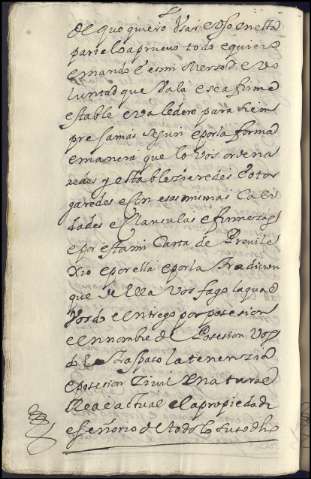 de que quiero usar e uso en esta
parte lo apruevo todo e quiero
e mando e es mi merced e vo
luntad que vala e sea firme
estable e valedero para siem
pre jamas segun e por la forma
e manera que lo vos ordena
redes y establecieredes e otor
garedes e con esas mismas cali
dades e clausulas e firmezas
e por esta mi carta de previle
xio e por ella e por la tradicion
que de ella vos fago la qual
vos do e entrego por posesion
e en nombre de posesion vos
do e traspaso la tenencia
e posesion civil e natural
real e actual e la propiedad
e señorio de todo lo susodho